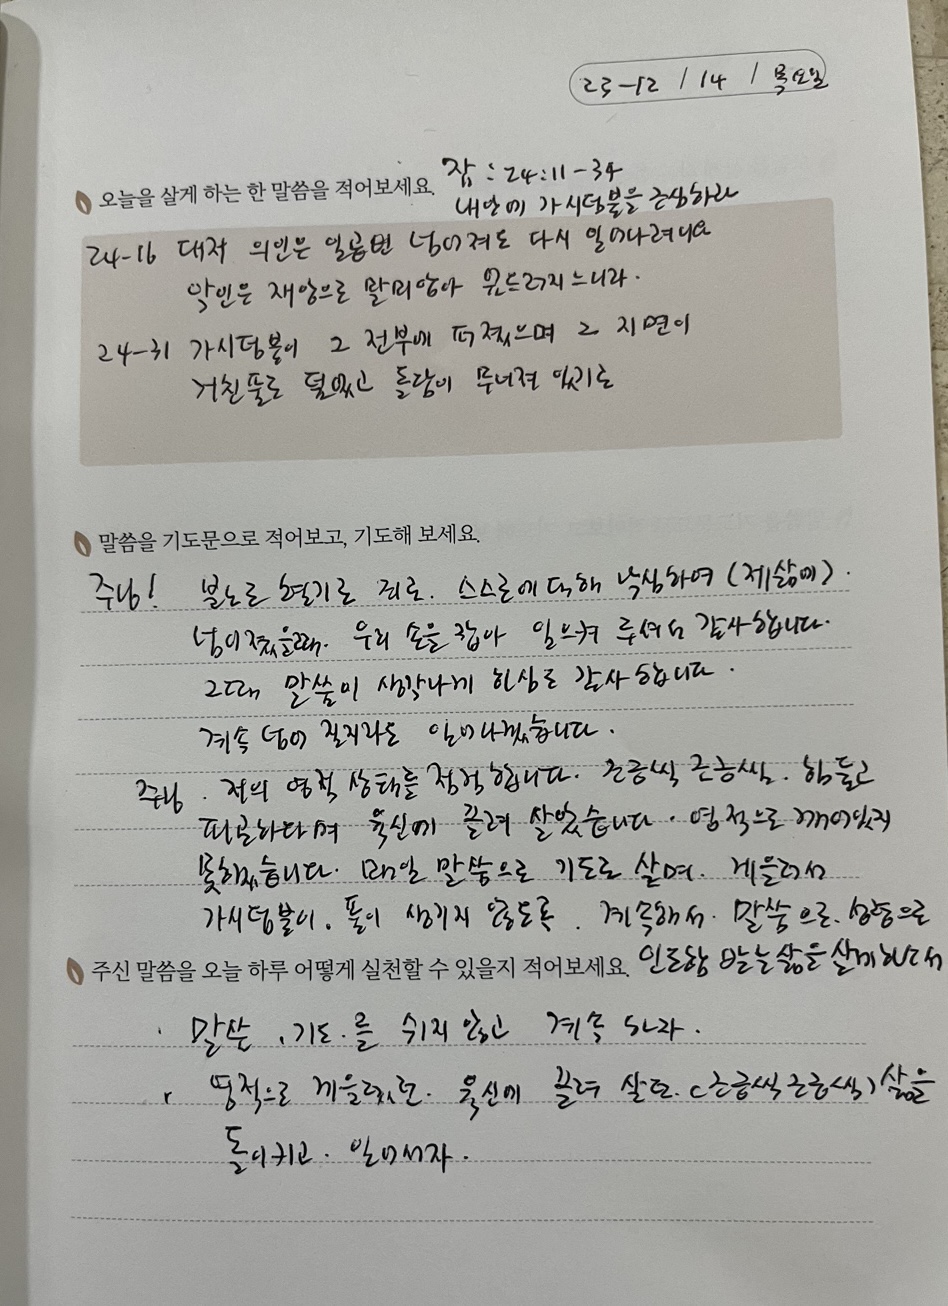 23-12 / 14 / 목요일
오늘을 살게 하는 한 말씀을 적어보세요.
잠 : 24:11-34
내안에 가시덤불을 근심하라
24-16 대저 의인은 일곱번 넘어져도 다시 일어나려니와
악인은 재앙으로 말미암아 엎드러지느니라.
24-31 가시덤불이 그 전부에 퍼졌으며 그 지면이
거친풀로 덮였고 돌담이 무너져 있기로
말씀을 기도문으로 적어보고, 기도해 보세요.
주님! 분노로 혈기로 죄로. 스스로에 대해 낙심하여 (제삶에).
넘어졌을때. 우리 손을 잡아 일으켜 주셔서 감사합니다.
그때 말씀이 생각나게 하심도 감사합니다.
계속 넘어 질지라도 일어나겠습니다.
주님. 저의 영적 상태를 점검합니다. 조금씩 조금씩. 힘들고
피곤하다며 육신에 끌려 살았습니다. 영적으로 깨어있지
못하였습니다. 매일 말씀으로 기도로 살며. 게을러서
가시덤불이. 풀이 생기지 않도록. 계속해서. 말씀으로. 성령으로
인도함 받는 삶을 살게하소서
주신 말씀을 오늘 하루 어떻게 실천할 수 있을지 적어보세요.
· 말씀. 기도.를 쉬지 않고 계속 하자.
· 영적으로 게을렀던. 육신에 끌려 살던. (조금씩조금씩) 삶을
돌이키고. 일어서자.